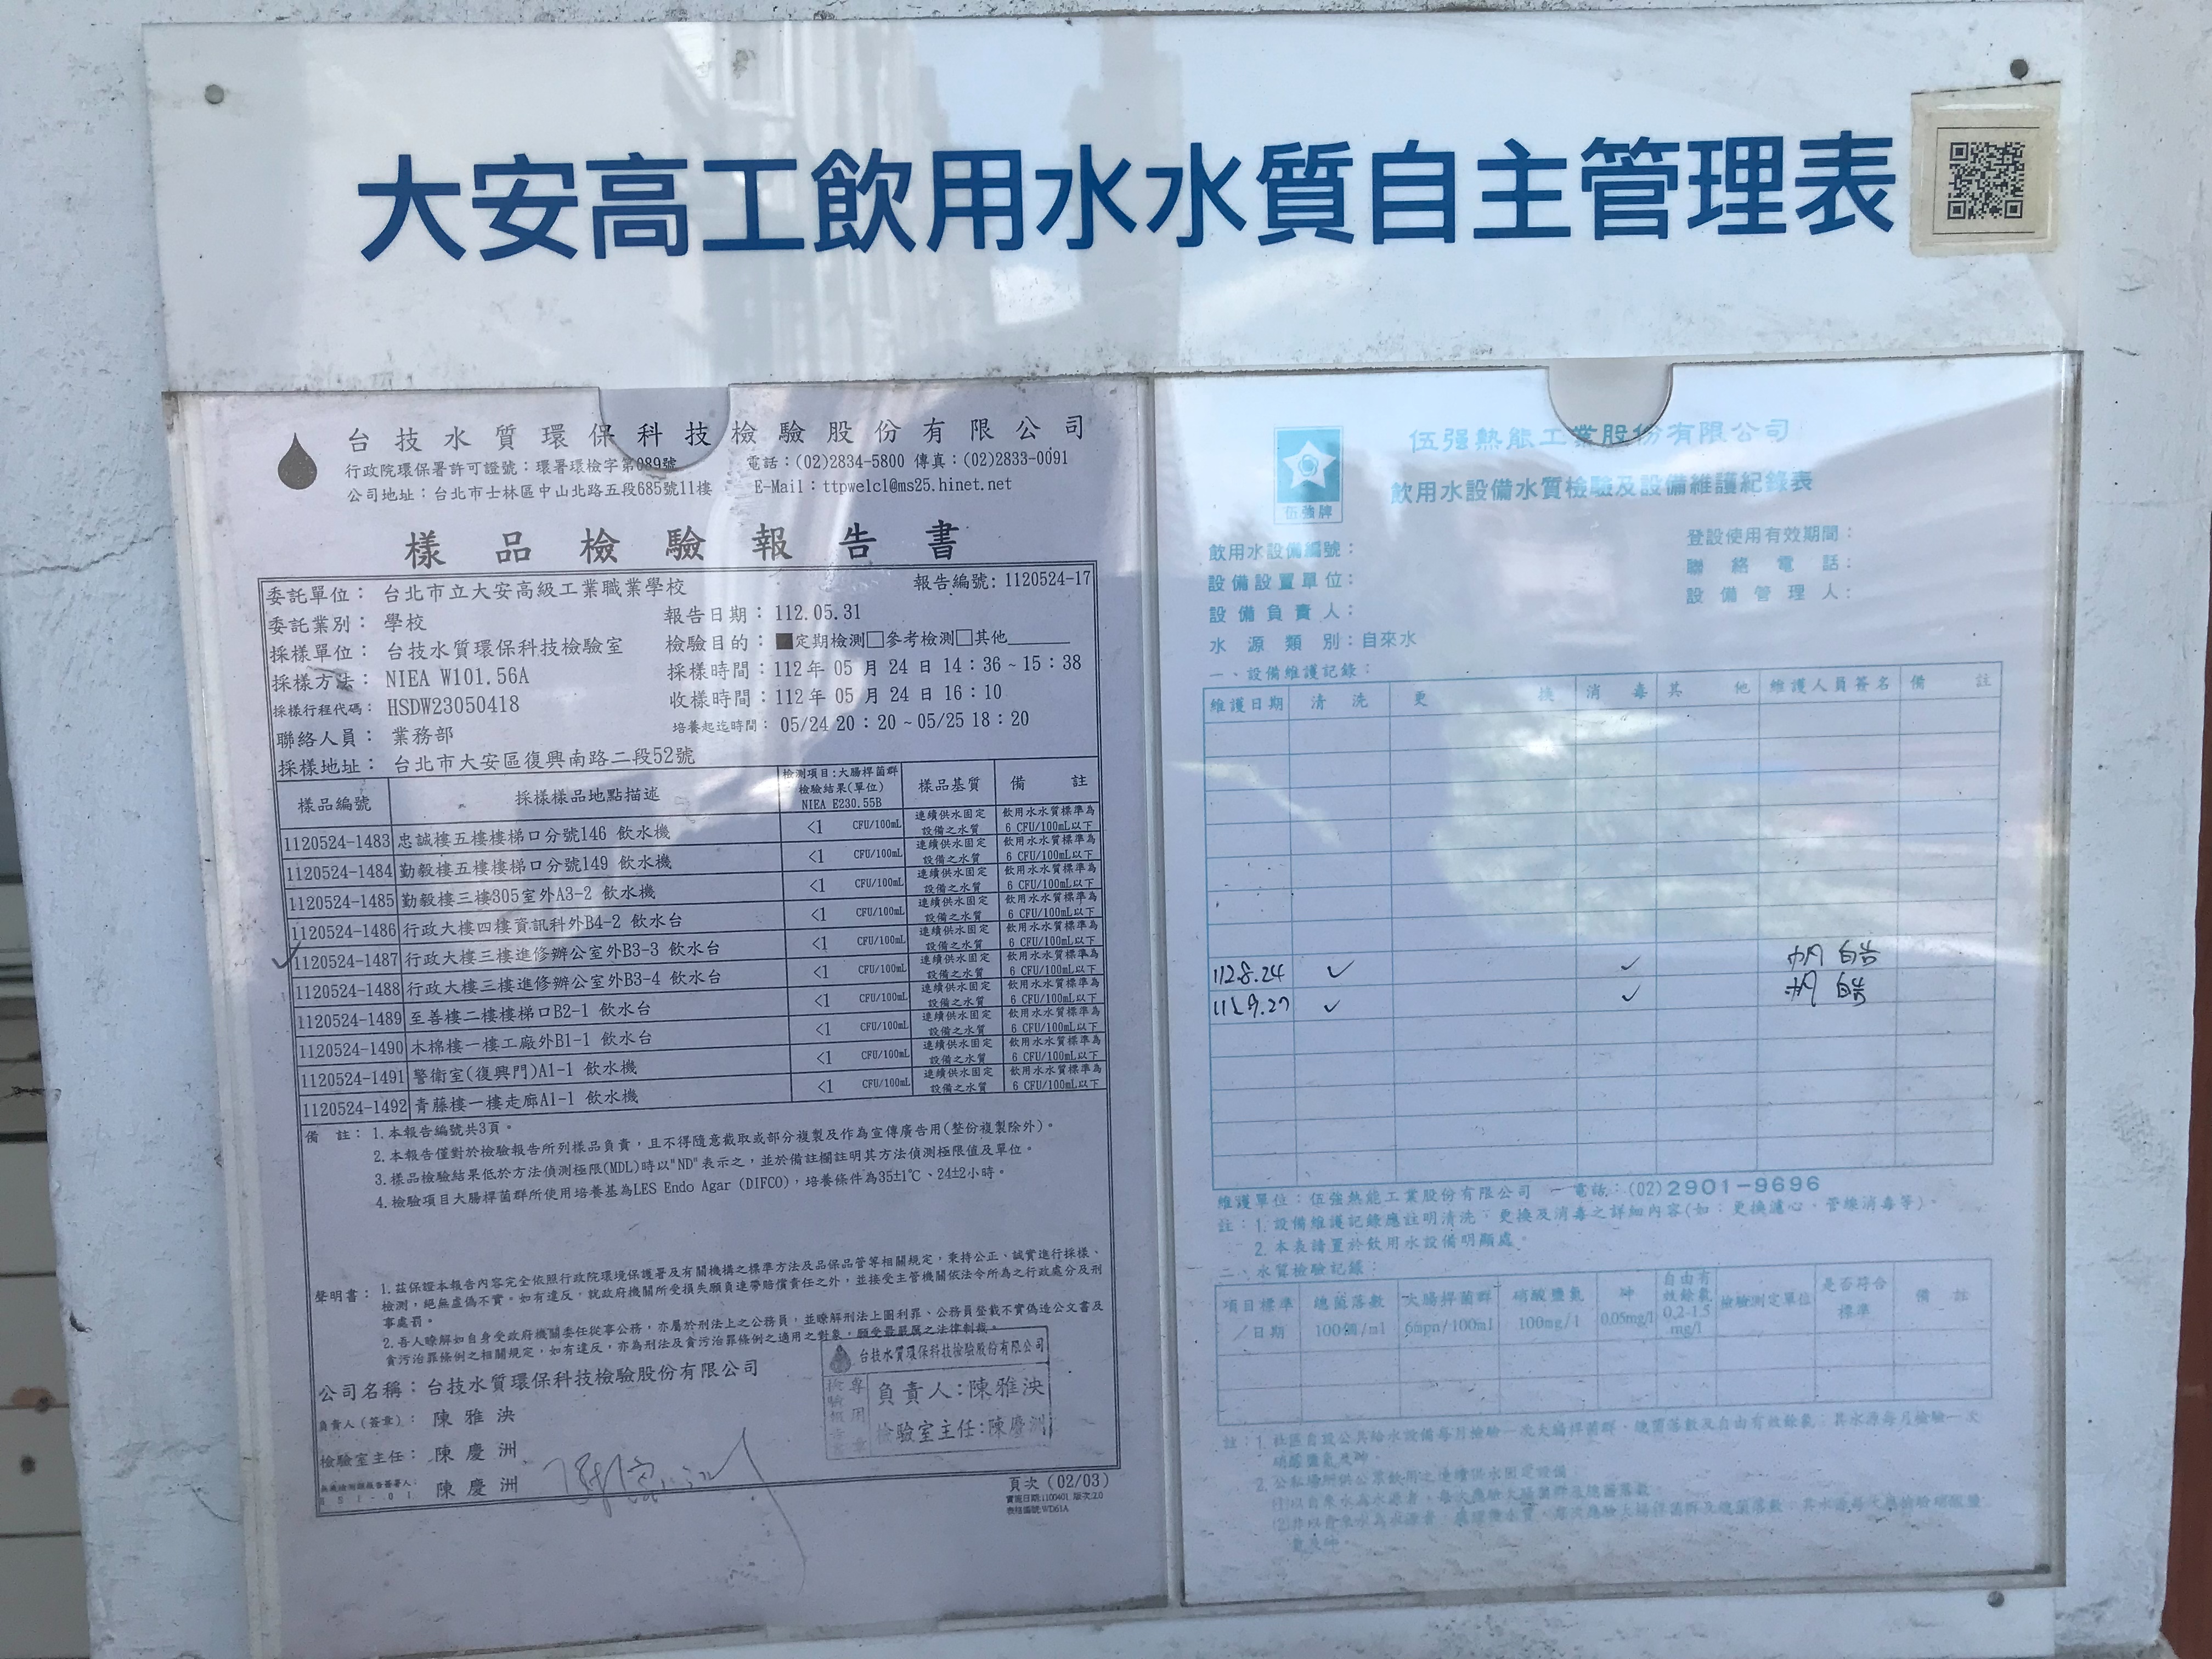 大安高工飲用水水質自主管理表
台技水質環保科技檢驗股份有限公司
行政院環保署許可證號：環署環檢字第089號 電話：(02)2834-5800 傳真：(02)2833-0091
公司地址：台北市士林區中山北路五段685號11樓 E-Mail：ttpwelcl@ms25.hinet.net
樣品檢驗報告書
委託單位：台北市立大安高級工業職業學校 報告編號：1120524-17
委託業別：學校 報告日期：112.05.31
採樣單位：台技水質環保科技檢驗室 檢驗目的：■定期檢測□參考檢測□其他
採樣方法：NIEA W101.56A 採樣時間：112年 05 月 24 日 14：36~15：38
採樣行程代碼：HSDW23050418 收樣時間：112年 05 月 24 日 16：10
聯絡人員：業務部 培養起迄時間：05/24 20：20~05/25 18：20
採樣地址：台北市大安區復興南路二段52號
樣品編號 採樣樣品地點描述 檢測項目:大腸桿菌群 檢驗結果(單位) NIEA E230.55B 樣品基質 備註
1120524-1483 忠誠樓五樓樓梯口分號146 飲水機 <1 CFU/100mL 連續供水固定設備之水質 飲用水水質標準為6 CFU/100mL以下
1120524-1484 勤毅樓五樓樓梯口分號149 飲水機 <1 CFU/100mL 連續供水固定設備之水質 飲用水水質標準為6 CFU/100mL以下
1120524-1485 勤毅樓三樓305室外A3-2 飲水機 <1 CFU/100mL 連續供水固定設備之水質 飲用水水質標準為6 CFU/100mL以下
1120524-1486 行政大樓四樓資訊科外B4-2 飲水台 <1 CFU/100mL 連續供水固定設備之水質 飲用水水質標準為6 CFU/100mL以下
✓1120524-1487 行政大樓三樓進修辦公室外B3-3 飲水台 <1 CFU/100mL 連續供水固定設備之水質 飲用水水質標準為6 CFU/100mL以下
1120524-1488 行政大樓三樓進修辦公室外B3-4 飲水台 <1 CFU/100mL 連續供水固定設備之水質 飲用水水質標準為6 CFU/100mL以下
1120524-1489 至善樓二樓樓梯口B2-1 飲水台 <1 CFU/100mL 連續供水固定設備之水質 飲用水水質標準為6 CFU/100mL以下
1120524-1490 木棉樓一樓工廠外B1-1 飲水台 <1 CFU/100mL 連續供水固定設備之水質 飲用水水質標準為6 CFU/100mL以下
1120524-1491 警衛室(復興門)A1-1 飲水機 <1 CFU/100mL 連續供水固定設備之水質 飲用水水質標準為6 CFU/100mL以下
1120524-1492 青藤樓一樓走廊A1-1 飲水機 <1 CFU/100mL 連續供水固定設備之水質 飲用水水質標準為6 CFU/100mL以下
備註：1.本報告編號共3頁。
2.本報告僅對於檢驗報告所列樣品負責，且不得隨意截取或部分複製及作為宣傳廣告用(整份複製除外)。
3.樣品檢驗結果低於方法偵測極限(MDL)時以"ND"表示之，並於備註欄註明其方法偵測極限值及單位。
4.檢驗項目大腸桿菌群所使用培養基為LES Endo Agar (DIFCO)，培養條件為35±1℃、24±2小時。
聲明書：1.茲保證本報告內容完全依照行政院環境保護署及有關機構之標準方法及品保品管等相關規定，秉持公正、誠實進行採樣、
檢測，絕無虛偽不實。如有違反，就政府機關所受損失願負連帶賠償責任之外，並接受主管機關依法令所為之行政處分及刑
事處罰。
2.吾人瞭解如自身受政府機關委任從事公務，亦屬於刑法上之公務員，並瞭解刑法上圖利罪、公務員登載不實偽造公文書及
貪污治罪條例之相關規定，如有違反，亦為刑法及貪污治罪條例之適用之對象，願受最嚴厲之法律制裁。
公司名稱：台技水質環保科技檢驗股份有限公司
負責人(簽章)：陳雅泱
檢驗室主任：陳慶洲
陳慶洲
台技水質環保科技檢驗股份有限公司
檢驗報告專用章
負責人:陳雅泱
檢驗室主任:陳慶洲
頁次(02/03)
實施日期:1100401 版次:2.0
表格編號:WD61A
伍強牌
伍强熱能工業股份有限公司
飲用水設備水質檢驗及設備維護紀錄表
飲用水設備編號： 登設使用有效期間：
設備設置單位： 聯絡電話：
設備負責人： 設備管理人：
水源類別：自來水
一、設備維護記錄：
維護日期 清洗 更換 消毒 其他 維護人員簽名 備註
112.8.24 ✓ ✓
112.9.27 ✓ ✓
維護單位：伍强熱能工業股份有限公司 電話：(02)2901-9696
註：1.設備維護記錄應註明清洗，更換及消毒之詳細內容(如：更換濾心、管線消毒等)。
2.本表請置於飲用水設備明顯處。
二、水質檢驗記錄：
項目標準／日期 總菌落數100個/ml 大腸桿菌群6mpn/100ml 硝酸鹽氮100mg/l 砷0.05mg/l 自由有效餘氯0.2-1.5mg/l 檢驗測定單位 是否符合標準 備註
註：1.社區自設公共給水設備每月檢驗一次大腸桿菌群，總菌落數及自由有效餘氯；其水源每月檢驗一次
硝酸鹽氮及砷。
2.公私場所供公眾飲用之連續供水固定設備
(1)以自來水為水源者，每次應驗大腸桿菌群及總菌落數。